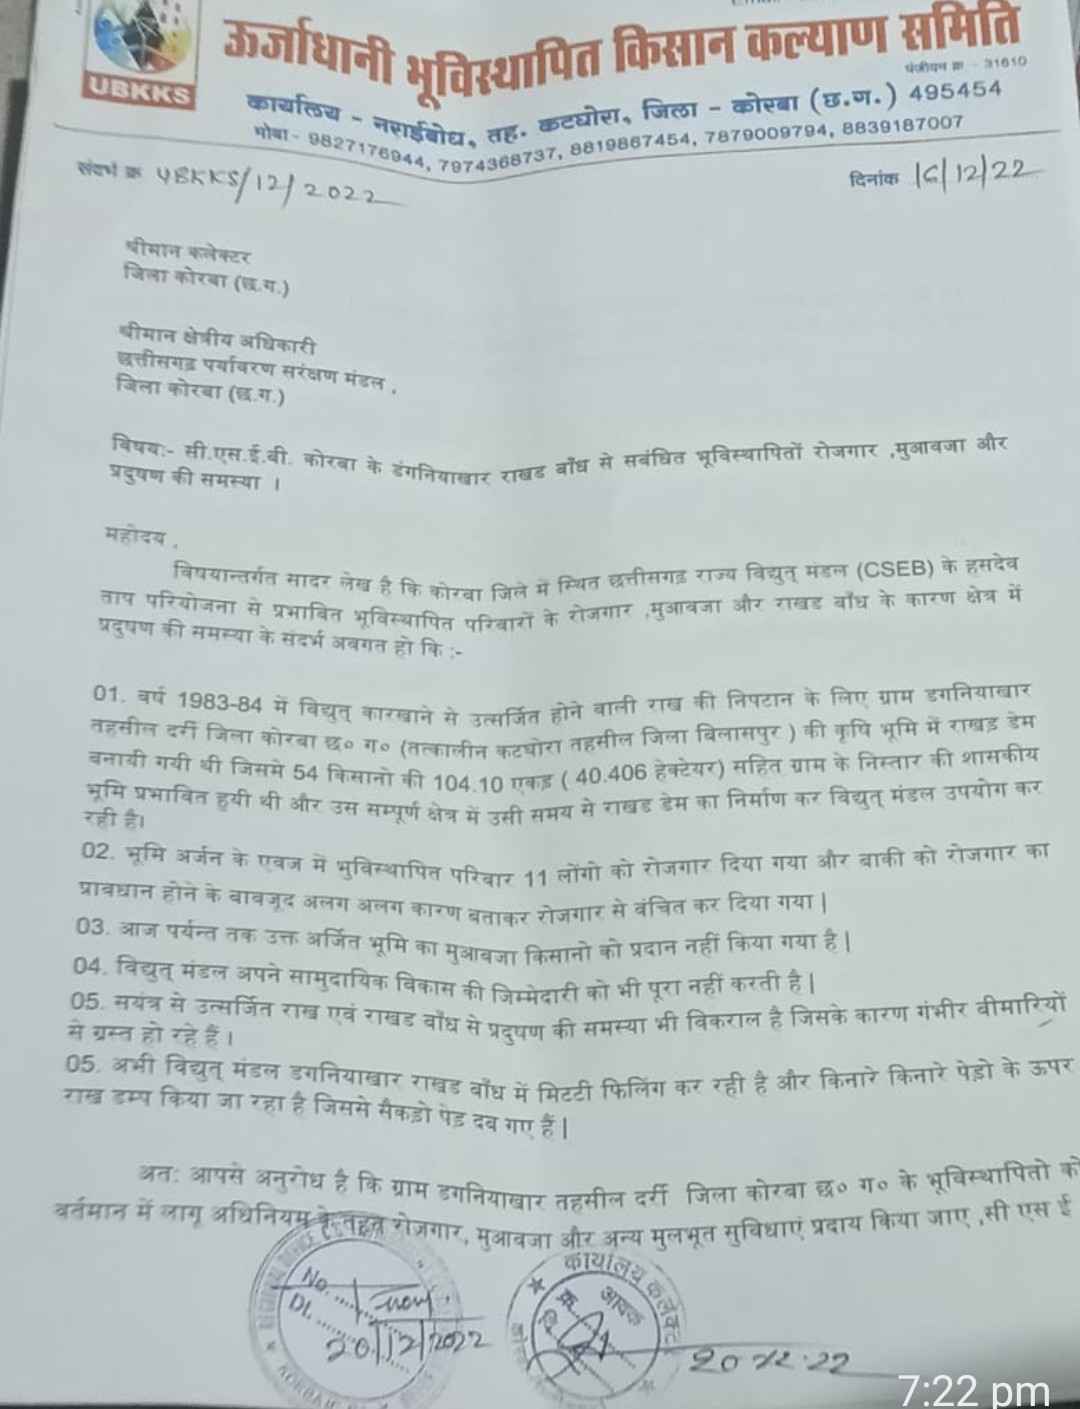 UBKKS
ऊर्जाधानी भूविस्थापित किसान कल्याण समिति
पंजीयन क्र - 31610
कार्यालय - नराईबोध, तह. कटघोरा, जिला - कोरबा (छ.ग.) 495454
मोबा- 9827176944, 7974368737, 8819867454, 7879009794, 8839187007
संदर्भ क्र UBKKS/12/2022
दिनांक 16/12/22
श्रीमान कलेक्टर
जिला कोरबा (छ.ग.)
श्रीमान क्षेत्रीय अधिकारी
छत्तीसगढ़ पर्यावरण सरंक्षण मंडल ,
जिला कोरबा (छ.ग.)
विषय:- सी.एस.ई.बी. कोरबा के डंगनियाखार राखड बाँध से सबंधित भूविस्थापितों रोजगार ,मुआवजा और
प्रदुषण की समस्या ।
महोदय ,
विषयान्तर्गत सादर लेख है कि कोरबा जिले में स्थित छत्तीसगढ़ राज्य विद्युत् मंडल (CSEB) के हसदेव
ताप परियोजना से प्रभावित भूविस्थापित परिवारों के रोजगार ,मुआवजा और राखड बाँध के कारण क्षेत्र में
प्रदुषण की समस्या के संदर्भ अवगत हो कि :-
01. वर्ष 1983-84 में विद्युत् कारखाने से उत्सर्जित होने वाली राख की निपटान के लिए ग्राम डगनियाखार
तहसील दर्री जिला कोरबा छ० ग० (तत्कालीन कटघोरा तहसील जिला बिलासपुर ) की कृषि भूमि में राखड़ डेम
बनायी गयी थी जिसमे 54 किसानो की 104.10 एकड़ ( 40.406 हेक्टेयर) सहित ग्राम के निस्तार की शासकीय
भूमि प्रभावित हुयी थी और उस सम्पूर्ण क्षेत्र में उसी समय से राखड डेम का निर्माण कर विद्युत् मंडल उपयोग कर
रही है।
02. भूमि अर्जन के एवज में भुविस्थापित परिवार 11 लोंगो को रोजगार दिया गया और बाकी को रोजगार का
प्रावधान होने के बावजूद अलग अलग कारण बताकर रोजगार से वंचित कर दिया गया |
03. आज पर्यन्त तक उक्त अर्जित भूमि का मुआवजा किसानो को प्रदान नहीं किया गया है |
04. विद्युत् मंडल अपने सामुदायिक विकास की जिम्मेदारी को भी पूरा नहीं करती है |
05. सयंत्र से उत्सर्जित राख एवं राखड बाँध से प्रदुषण की समस्या भी विकराल है जिसके कारण गंभीर बीमारियों
से ग्रस्त हो रहे हैं ।
05. अभी विद्युत् मंडल डगनियाखार राखड बाँध में मिटटी फिलिंग कर रही है और किनारे किनारे पेड़ो के ऊपर
राख डम्प किया जा रहा है जिससे सैकड़ो पेड़ दब गए हैं |
अत: आपसे अनुरोध है कि ग्राम डगनियाखार तहसील दर्री जिला कोरबा छ० ग० के भूविस्थापितो को
वर्तमान में लागू अधिनियम के तहत रोजगार, मुआवजा और अन्य मुलभूत सुविधाएं प्रदाय किया जाए ,सी एस ई
कार्यालय कलेक्टर
आवक
No.
Dt. 20/12/2022
20-12-22
7:22 pm